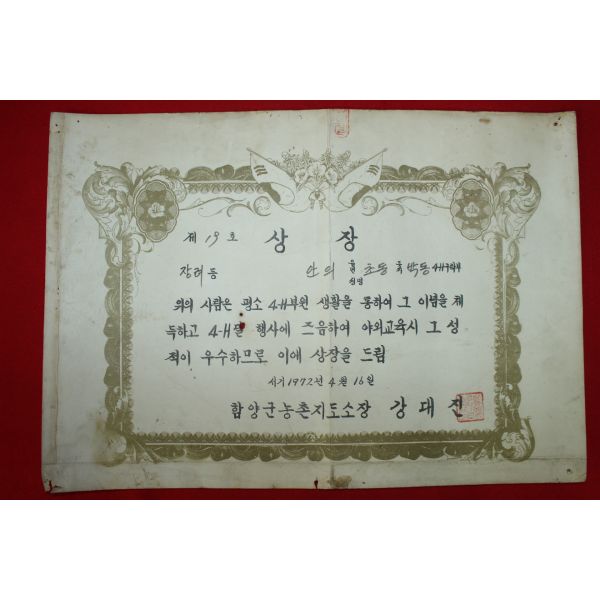 제 19 호 상 장
장려등 안의 초동 박동
위의 사람은 평소 4-H부원 생활을 통하여 그 이념을 체
득하고 4-H 행사에 즈음하여 야외교육시 그 성
적이 우수하므로 이에 상장을 드림
서기 1972년 4월 16일
함양군농촌지도소장 강대진